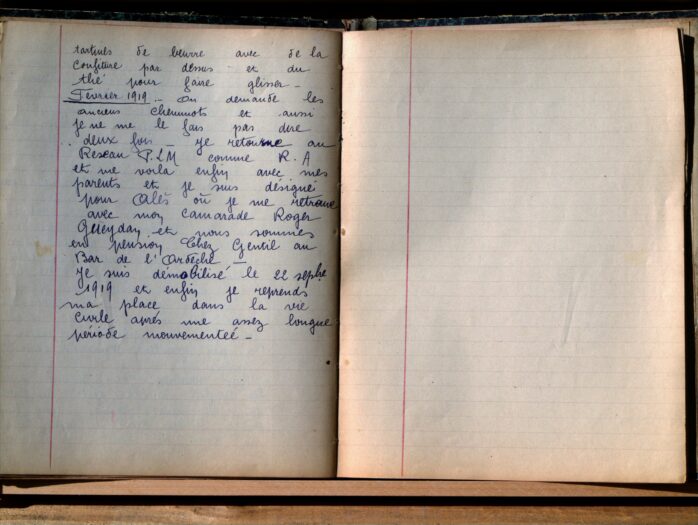 tartines de beurre avec de la
confiture par dessus et du
thé pour faire glisser _
Fevrier 1919 _ On demande les
anciens cheminots et aussi
je ne me le fais pas dire
deux fois _ je retourne au
Reseau P.L.M comme R.A
et me voila enfin avec mes
parents et je suis désigné
pour Alès où je me retrouve
avec mon camarade Roger
Gueyday et nous sommes
en pension Chez Gentil au
Bar de l'Ardèche _
Je suis démobilisé le 22 septbre
1919 et enfin je reprends
ma place dans la vie
civile après une assez longue
période mouvementeé _